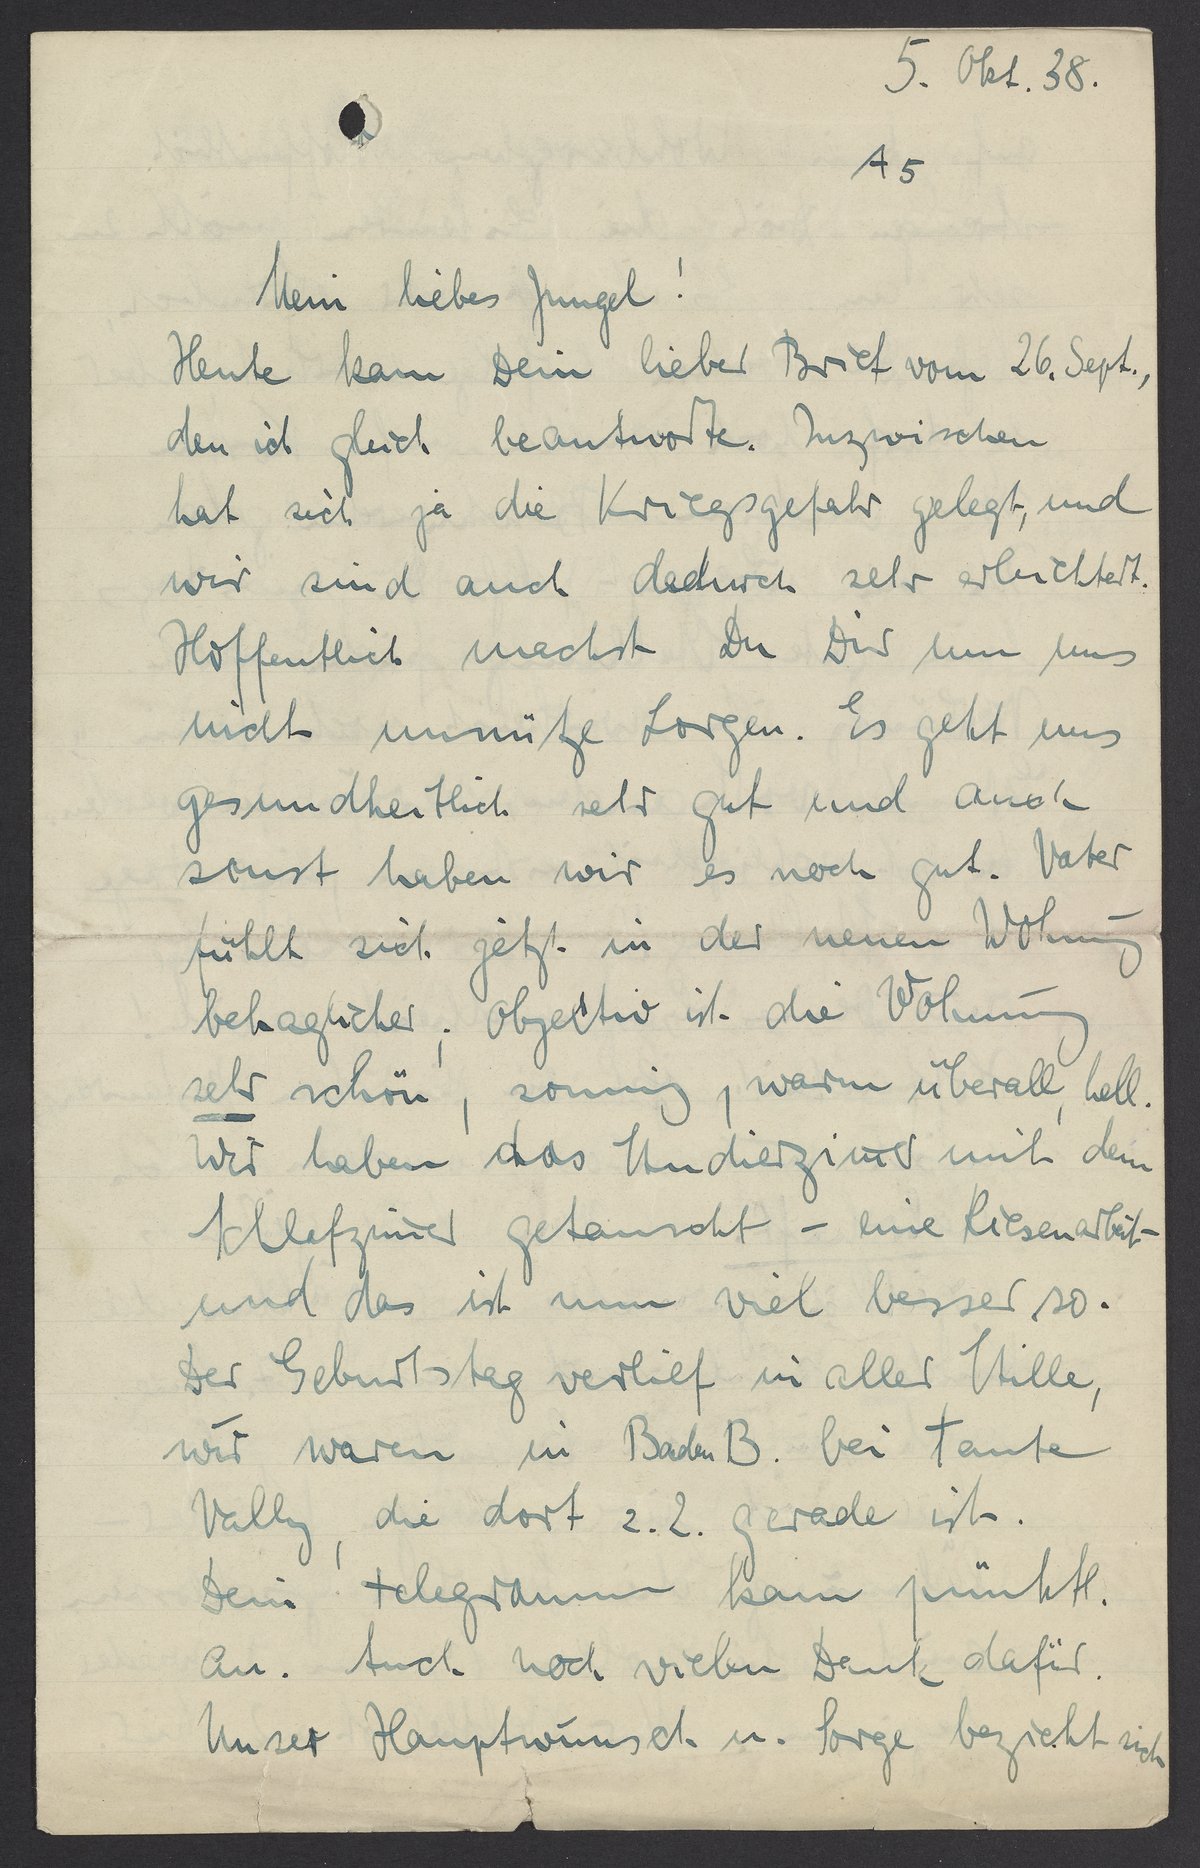 5. Okt. 38.
A 5
Mein liebes Jungel!
Heute kam Dein lieber Brief vom 26. Sept.,
den ich gleich beantworte. Inzwischen
hat sich ja die Kriegsgefahr gelegt, und
wir sind auch dadurch sehr erleichtert.
Hoffentlich machst Du Dir um uns
nicht unnütze Sorgen. Es geht uns
gesundheitlich sehr gut und auch
sonst haben wir es noch gut. Vater
fühlt sich jetzt in der neuen Wohnung
behaglicher; objektiv ist die Wohnung
sehr schön, sonnig, warm überall, hell.
Wir haben das Studierzim̅er mit dem
Schlafzim̅er getauscht – eine Riesenarbeit –
und das ist nun viel besser so.
Der Geburtstag verlief in aller Stille,
wir waren in Baden B. bei Tante
Vally, die dort z. Z. gerade ist.
Dein Telegramm kam pünktl.
an. Auch noch vielen Dank dafür.
Unser Hauptwunsch u. Sorge bezieht sich